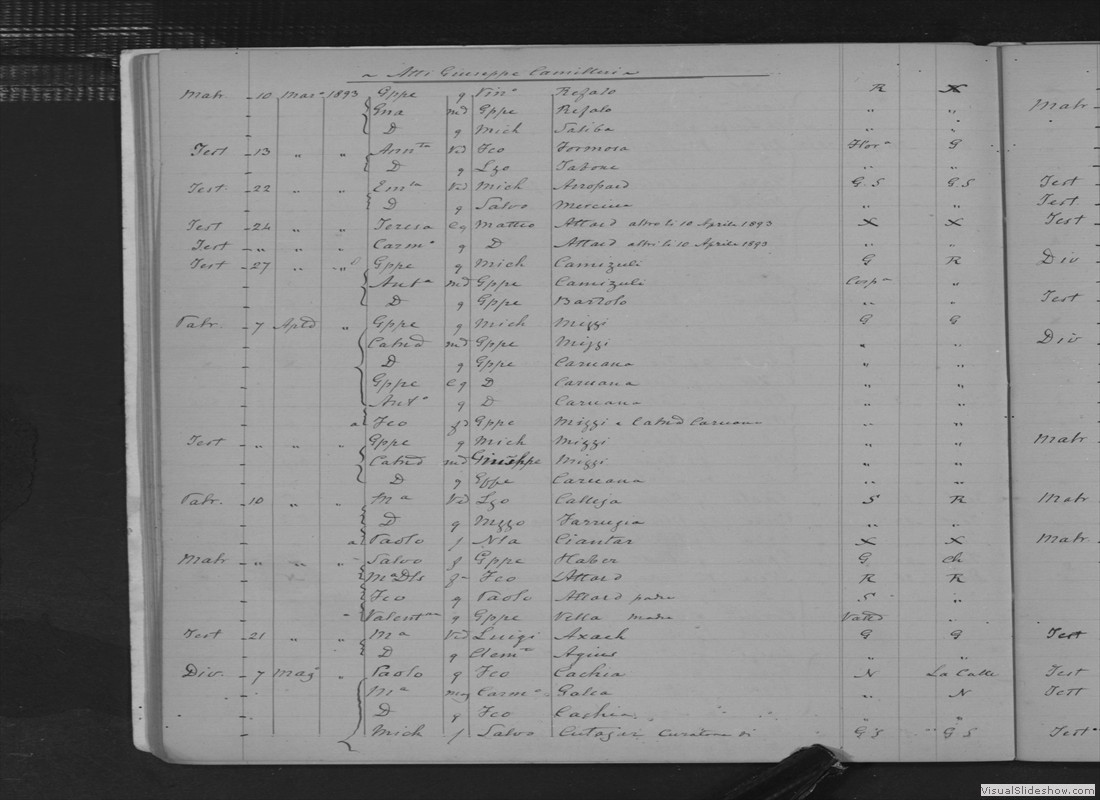 Atti Giuseppe Camilleri
Matr. 10 Marz 1893 Gppe q Vinc Refalo R X
Gna md Gppe Refalo " "
D q Mich Saliba " "
Test 13 " " Vd Fco Formosa Flor G
D q Lzo Tabone " "
Test. 22 " " Vd Mich G.S G.S
D q Salvo Mercieca " "
Test 24 " " Teresa Cq Matteo Attard altro li 10 Aprile 1893 X X
Test " " " Carm q D Attard altro li 10 Aprile 1893 " "
Test 27 " " Gppe q Mich Camizuli G R
Ant md Gppe Camizuli Cosp "
D q Gppe Bartolo " "
Patr. 7 " Gppe q Mich Mizzi G G
md Gppe Mizzi " "
D q Gppe Caruana " "
Gppe Cq D Caruana " "
Ant q D Caruana " "
a Fco Gppe Mizzi e Caruana " "
Test " " " Gppe q Mich Mizzi " "
md Giuseppe Mizzi " "
D q Gppe Caruana " "
Patr. 10 " " Ma Vd Lzo Calleja S R
D q Farrugia " "
a Paolo f Nla Ciantar X X
Matr " " " Salvo f Gppe Haber G Ch
f Fco Attard R R
Fco q Paolo Attard padre S "
q Gppe Vella madre "
Test 21 " " Ma Vd Luigi Axach G G
D q Clem Agius " "
Div. 7 Mag " Paolo q Fco Cachia N La Calle
Ma Carm Galea " N
D q Fco Cachia "
Mich f Salvo Cutajar Curatore di G S G S
Matr
Test
Test
Test
Div
Test
Div
Matr
Matr
Matr
Test
Test
Test
Test
VisualSlideshow.com